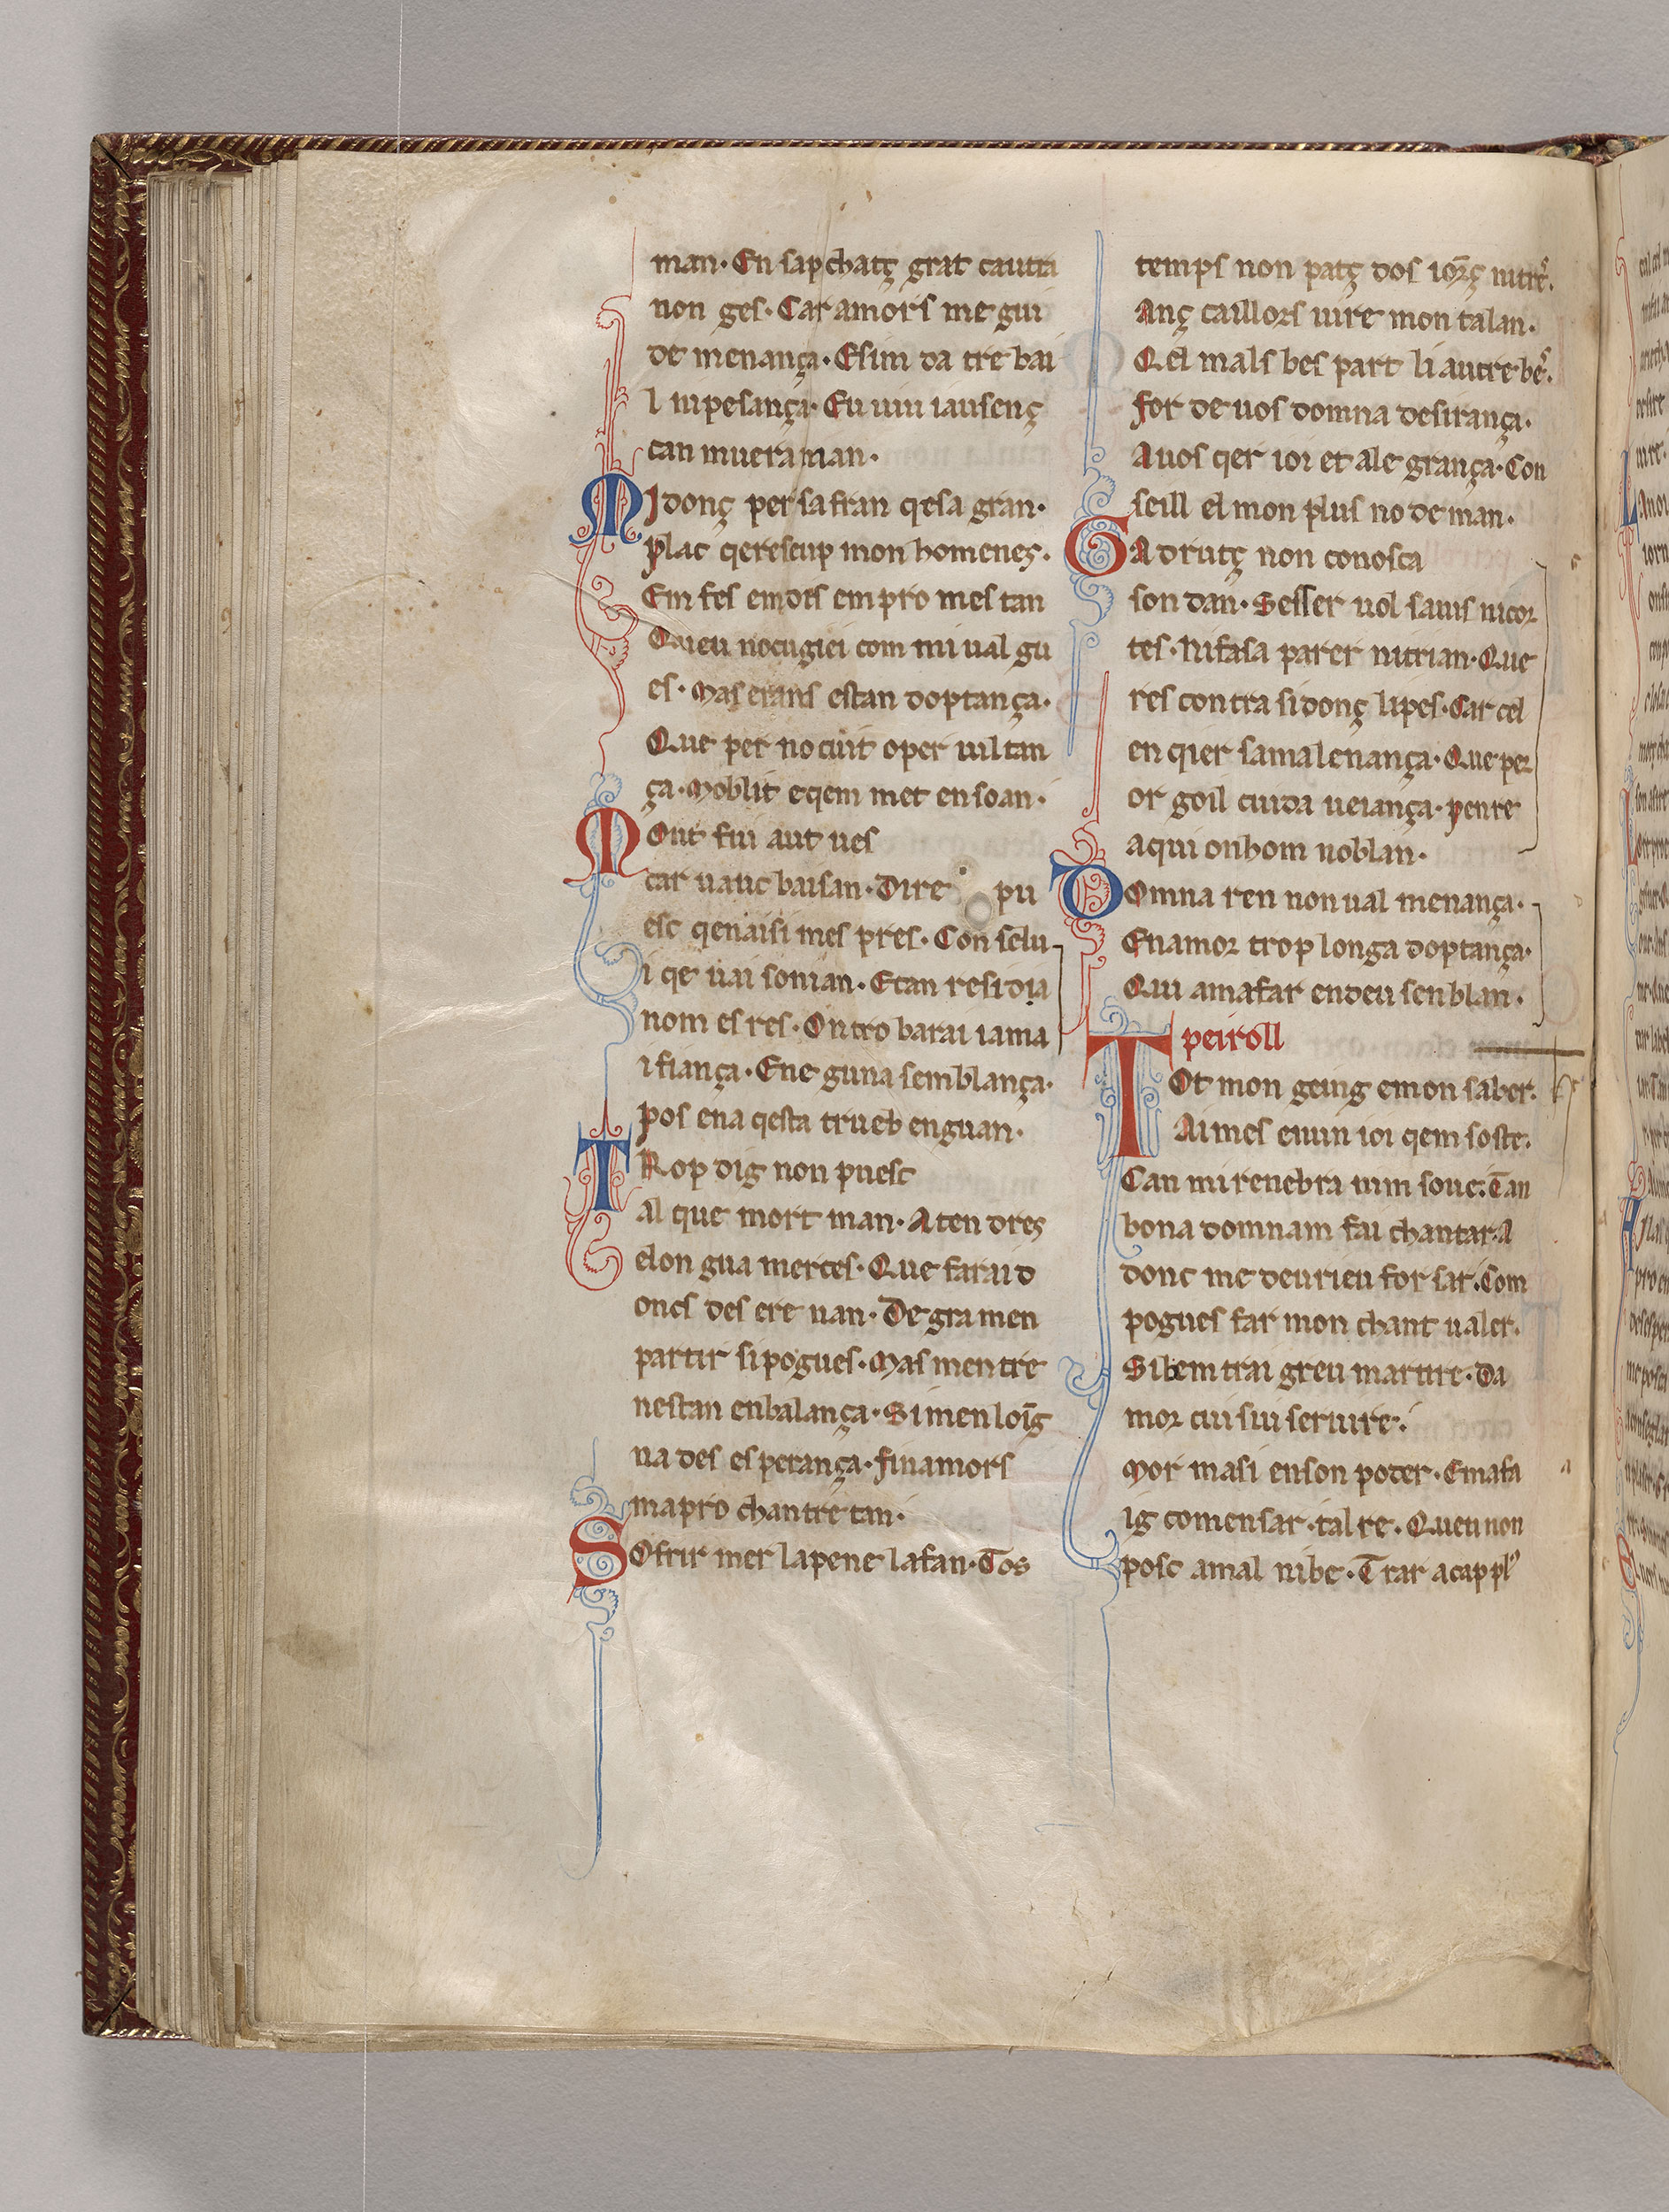 man· En sapchatç grat cautra
non ges· Car amors me gui
de menança· Esim da tre bai
l nipesança· Eu uiu iausenç
can muera man·
MIdonç per sa fran qesa gran·
plac qereseup mon homenes·
Em fes emdis em pro mes tan
Queu nocugiei com mi ual gu
es· Mas erams estan doptança·
Que per no cuit oper uiltan
ça· Moblit eqem met en soan·
MOut fui aut ues
car uauc baisan· Dire pu
esc qenaisi mes pres· Con selu
i qe uai sonian· Ecan residia
nom es res· On tro barai iama
i fiança· Ene guna semblança·
pos ena qesta trueb enguan·
TRop dig non puesc
al que mort man· Aten dres
elon gua merces· Que farai d
oncs des ere uan· De gra men
partir si pogues· Mas men tre
nestan enbalança· Si men loig
na des esperança· finamors
ma pro chantre tan·
SOfrir mer la pene lafan· Tos
temps non patç dos iorç nitrs.
Anç caillors uire mon talan·
Qel mals bes part li autre bes.
for de uos domna desirança·
Auos qer ioi et ale grança· Con
seill el mon plus no de man·
GA drutç non conosca
son dan· Sesser uol sauis nicor
tes· Nifasa parer nitrian· Que
res contra sidonç lipes· Car cel
en qier samalenança· Que per
or goil cuida ueiança· penre
aqui on hom noblan·
DOmna ren non ual menança·
Enamor trop longa doptança·
Qui amafar en deu senblan·
peiroll
TOt mon geing emon saber·
Ai mes enun ioi qem soste·
Can mi renebra nim soue· Tan
bona domnam fai chantar· A
donc me deurieu for sar· Com
pogues far mon chant ualer·
Sibem trai greu martire· Da
mor cui sui seruire·
Mor ma si enson poder· Emafa
ig comensar tal re· Queu non
posc amal nibe· Trar acap pl'